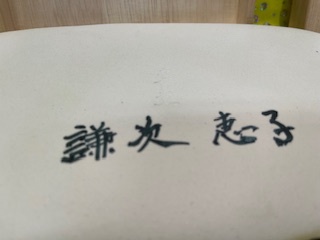 謙次 恵子